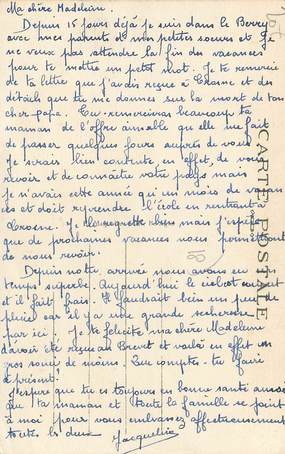 Ma chère Madeleine.
Depuis 15 jours déjà je suis dans le Berry
avec mes parents et mes petites soeurs et je
ne veux pas attendre la fin des vacances
pour te mettre un petit mot. Je te remercie
de ta lettre que j'avais reçue à Crosne et des
détails que tu me donnes sur la mort de ton
cher papa. Tu remercieras beaucoup ta
maman de l'offre aimable qu'elle me fait
de passer quelques jours auprès de vous
Je serais bien contente en effet, de vous
revoir et de connaître votre pays mais
je n'avais cette année qu'un mois de vacan
ces et dois reprendre l'école en rentrant à
Crosne. Je le regrette bien mais j'espère
que de prochaines vacances nous permettront
de nous revoir.
Depuis notre arrivée nous avons eu un
temps superbe. Aujourd'hui le ciel est couvert
et il fait frais. Il faudrait bien un peu de
pluie car il y a une grande sécheresse
par ici. Je te félicite ma chère Madeleine
d'avoir été reçue au Brevet et voilà en effet un
gros souci de moins. Que compte-tu faire
à présent?
J'espère que tu es toujours en bonne santé ainsi
que ta maman et toute la famille se joint
à moi pour vous embrasser affectueusement
toutes les deux. Jacqueline
CARTE POSTALE